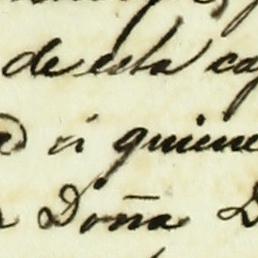 de esta ca
á quiene
Doña D